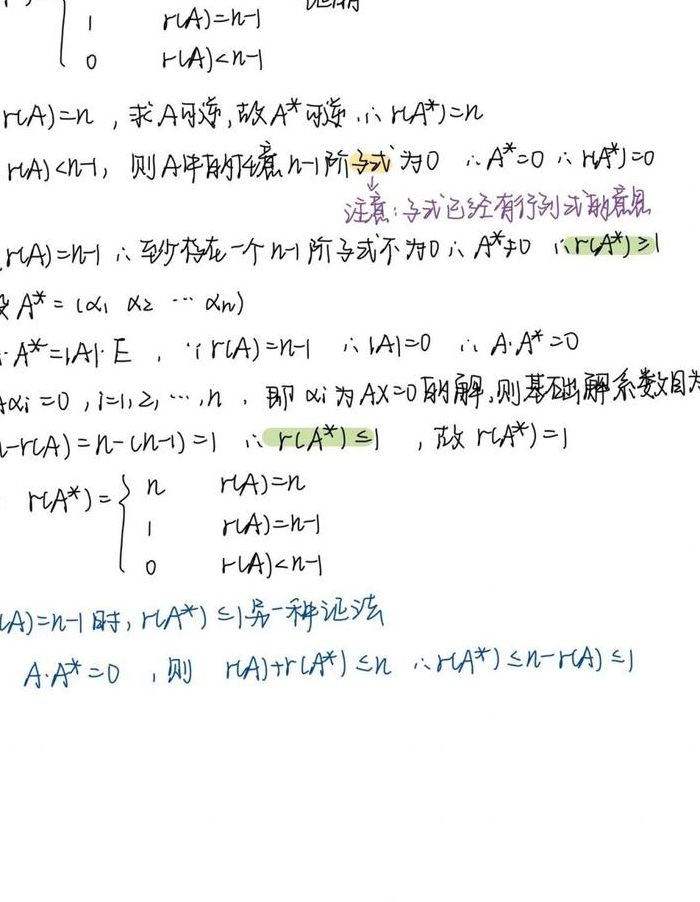 1 r(A)=n-1 证明
0 r(A)<n-1
r(A)=n ,求A可逆,故A*可逆 ∴ r(A*)=n
r(A)<n-1, 则A中的任意n-1阶子式为0 ∴A*=0 ∴ r(A*)=0
注意:子式已经有行列式的意思
r(A)=n-1 ∴至少存在一个n-1阶子式不为0 ∴ A*≠0 ∴r(A*)≥1
设A*=(α₁ α₂ ⋯ αn)
·A*=|A|·E , ∵r(A)=n-1 ∴|A|=0 ∴ A·A*=0
Aαi=0 ,i=1,2,⋯,n , 即αi为AX=0的解,则基础解系数目为
n-r(A)=n-(n-1)=1 ∴r(A*)≤1 ,故r(A*)=1
r(A*)={ n r(A)=n
1 r(A)=n-1
0 r(A)<n-1
r(A)=n-1时, r(A*)≤1另一种证法
A·A*=0 ,则 r(A)+r(A*)≤n ∴r(A*)≤n-r(A)≤1